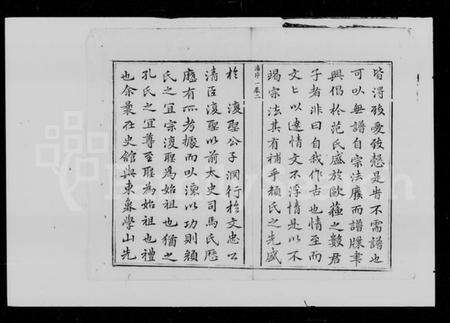 皆得致愛致慤是吉不需譜也
可以無譜自宗法廢而譜牒聿
興倡於范氏盛於歐蘓之數君
子者非曰自我作古也情至而
文文以達情文不浮情是以不
竭宗法其有補乎顏氏之先盛
於復聖公子淵行於文忠公
清臣復聖以前太史司馬氏歷
應有所考據而以濂以功則顏
氏之宜宗復聖為始祖也猶之
孔氏之宜尊至聖為始祖也禮
也余曩在史館與東魯學山先